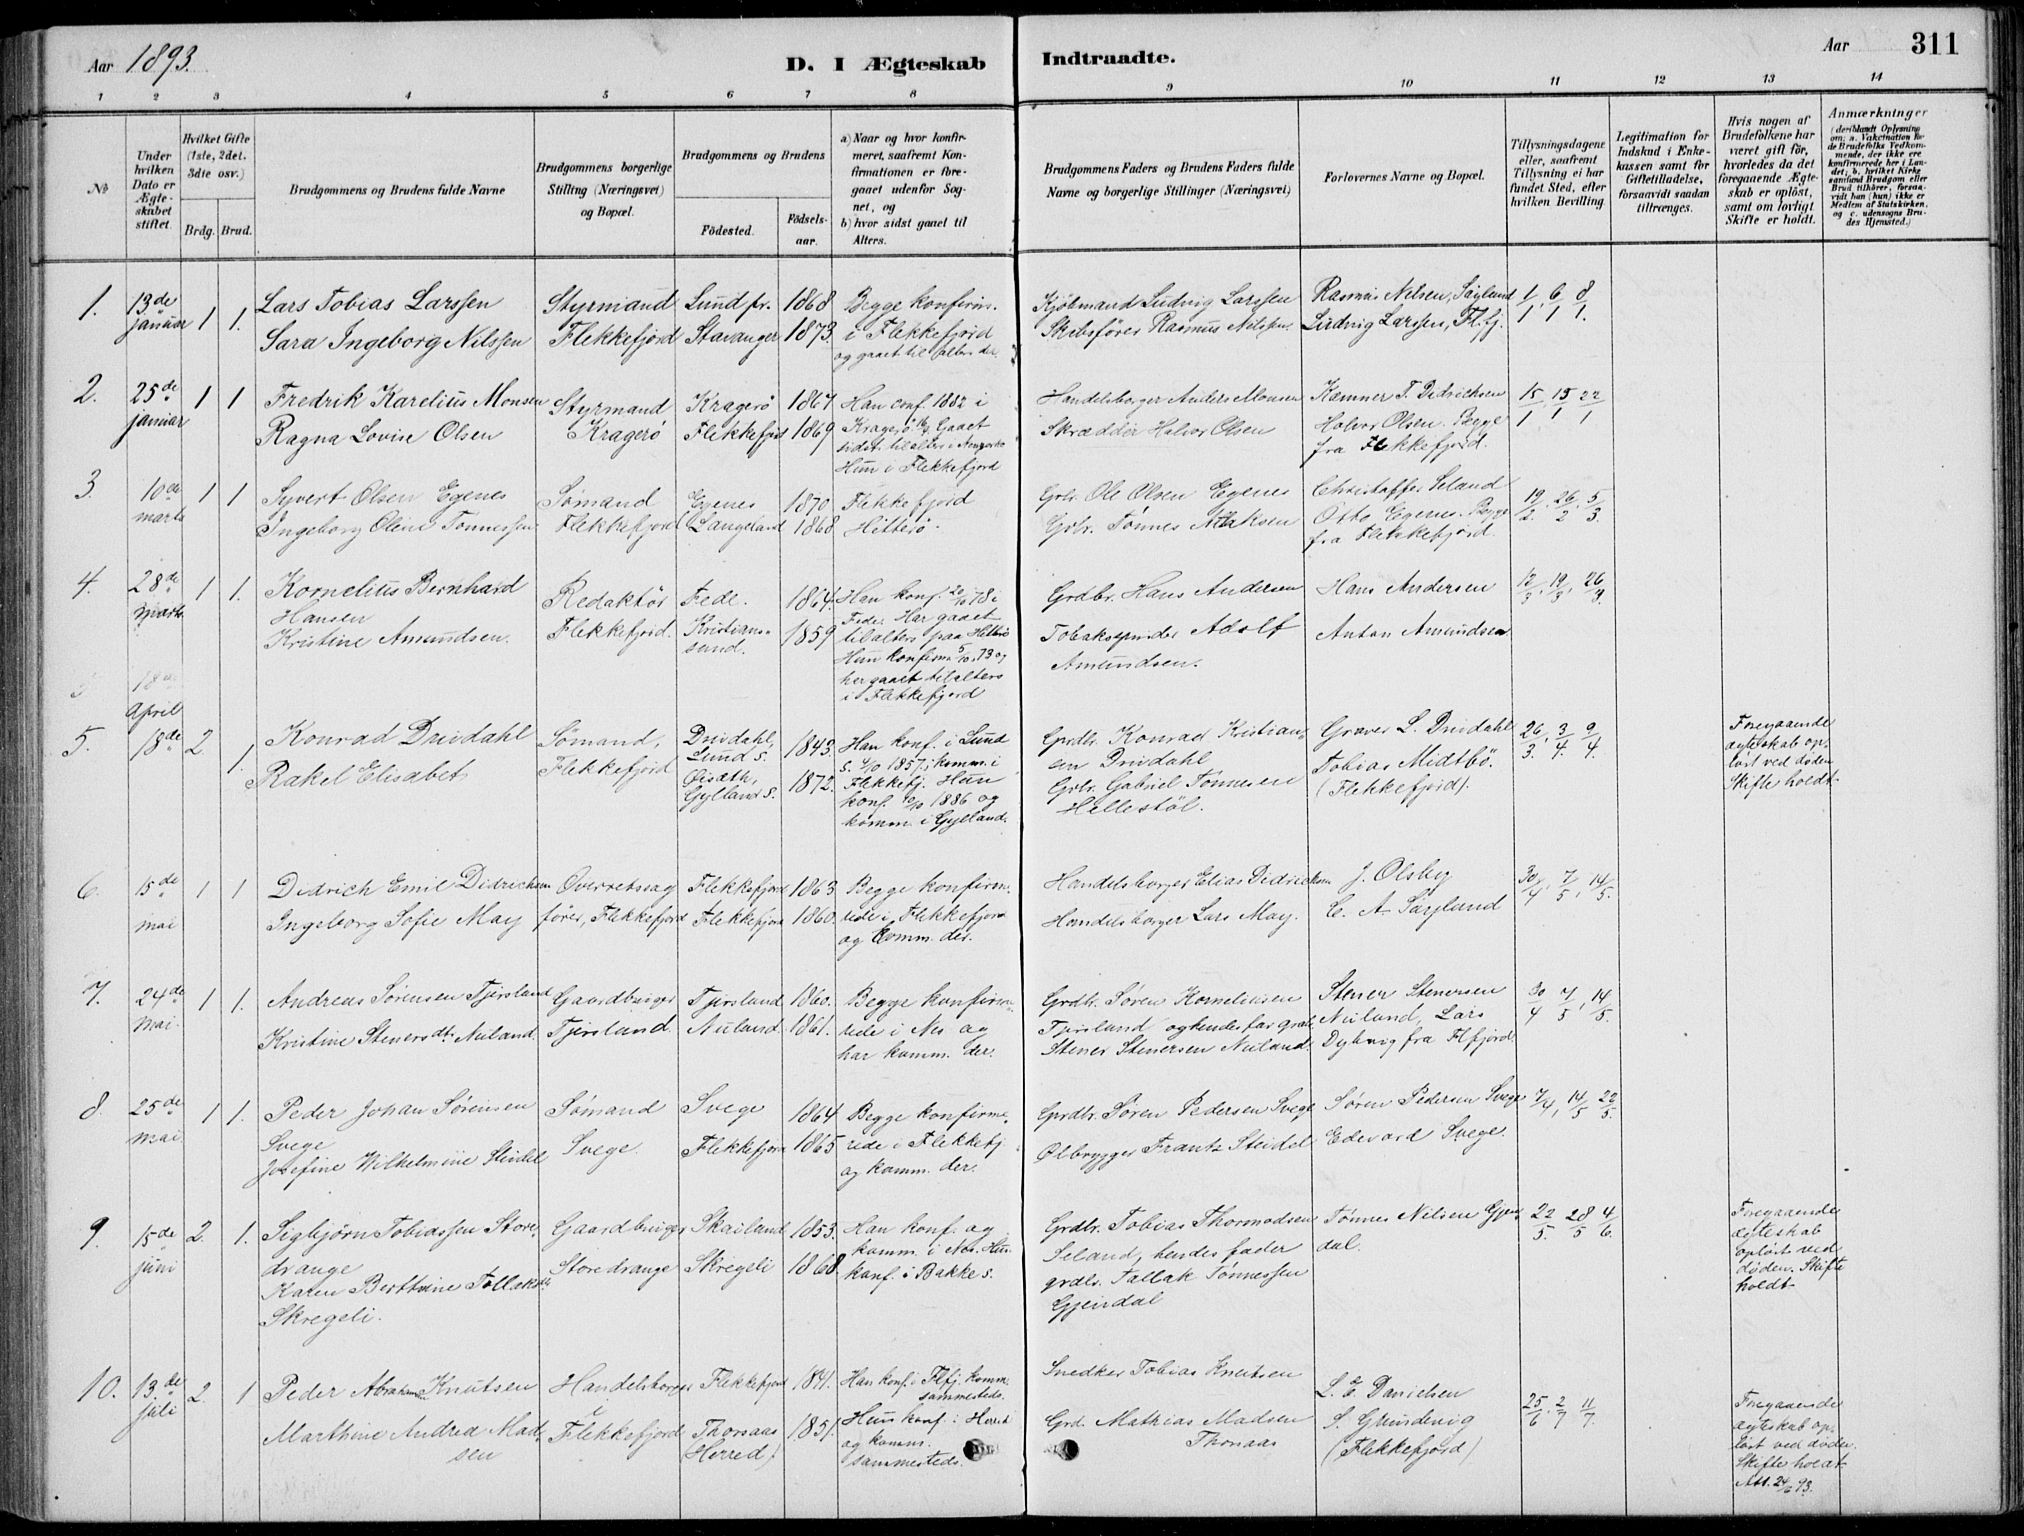 Aar 1893.
D. I Ægteskab
Indtraadte.
Aar 311
1 2 3 4 5 6 7 8 9 10 11 12 13 14
No
Under hvilken Dato er Ægteskabet stiftet.
Hvilket Gifte (1ste, 2det, 3die osv.)
Brdg. Brud.
Brudgommens og Brudens fulde Navne
Brudgommens borgerlige Stilling (Næringsvei) og Bopæl.
Brudgommens og Brudens
Födested.
Födselsaar.
a) Naar og hvor konfirmeret, saafremt Konfirmationen er foregaaet udenfor Sognet, og
b) hvor sidst gaaet til Alters.
Brudgommens Faders og Brudens Faders fulde Navne og borgerlige Stillinger (Næringsvei)
Forlovernes Navne og Bopæl.
Tillysningsdagene eller, saafremt Tillysning ei har fundet Sted, efter hvilken Bevilling.
Legitimation for Indskud i Enkekassen samt for Giftetilladelse, forsaavidt saadan tiltrænges.
Hvis nogen af Brudefolkene har været gift för, hvorledes da det foregaaende Ægteskab er oplöst, samt om lovligt Skifte er holdt.
Anmærkninger
(deriblandt Oplysning om: a. Vakcination for de Brudefolks Vedkommende, der ikke ere konfirmerede her i Landet; b. hvilket Kirkesamfund Brudgom eller Brud tilhörer, forsaavidt han (hun) ikke er Medlem af Statskirken, og c. udensogns Brudes Hjemsted.)
1. 13de januar 1 1.
Lars Tobias Larssen
Sara Ingeborg Nilssen
Styrmand
Flekkefjord
Lund pr. 1868
Stavanger 1873.
Begge konfirm.
i Flekkefjord
og gaaet til alters der.
Kjöbmand Ludvig Larssen
Skibsförer Rasmus Nilssen.
Rasmus Nilsen, Söyland
Ludvig Larssen, Fl.fj.
1/1, 6/1, 8/1.
2. 25de januar 1 1
Fredrik Karelius Monsen
Ragna Lovise Olsen
Styrmand
Kragerö
Kragerö 1867
Flekkefjord 1869
Han conf. 1882 i
Hun i Flekkefjord
Handelsborger Anders Monsen
Skrædder Halvor Olsen
Kæmner T. Didrichsen
Halvor Olsen. Begge
fra Flekkefjord.
15/1, 15/1, 22/1
3. 10de marts 1 1
Syvert Olsen Egenes
Ingeborg Oline Tönnessen
Sømand
Flekkefjord
Egenes 1870
(Langeland 1868
Flekkefjord
Hitterö.
Grbr. Ole Olsen Egenes
Grbr. Tønnes
Christoffer Seland
Otto Egenes. Begge
fra Flekkefjord.
19/2, 26/2, 5/3.
4. 28de marts 1 1.
Kornelius Bernhard
Hansen
Kristine Amundsen.
Redaktör
Flekkefjord.
Fede. 1864.
Kristianssund. 1859
Han konf. 20/10 78 i
Fede. Har gaaet
til alters paa Hitterö
Hun konfirm 5/10 73 og
har gaaet til alters
i Flekkefjord
Grdbr. Hans Andersen
Tobakspinder Adolf
Amundsen.
Hans Andersen
Anton Amundsen
12/3, 19/3, 26/3.
5 18de April
5. 18de 2. 1.
Konrad Dridahl
Rakel Elisabet
Sømand,
Flekkefjord
Dridahl,
Lund s. 1843.
Gylland s. 1872.
Han konf. i Lund
s. 1857; komm. i
Flekkefj. Hun
konf. 1886 og
komm. i Gylland.
Grdbr. Konrad Kristiansen Dridahl
Grbr. Gabriel Tønnesen
Hellestöl.
Graver L. Dridahl
Tobias Midtbö.
(Flekkefjord).
26/3, 3/4, 9/4.
Foregaaende
ægteskab oplöst ved döden
Skifte holdt
6. 15de mai 1 1
Didrich Emil Didrichsen
Ingeborg Sofie May
Overretssagförer, Flekkefjord
Flekkefjord 1863
Flekkefjord 1860.
Begge konfirmerede i Flekkefjord
og komm. der.
Handelsborger Elias Didricksen
Handelsborger Lars May.
J. Olsby
C. A. Söyland
30/4, 7/5, 14/5.
7. 24de mai. 1 1.
Andreas Sørensen Tjersland
Kristine Stenersdtr. Nuland.
Gaardbruger
Tjersland.
Tjersland 1860.
Nuland. 1861.
Begge konfirmerede i Nes og
har komm. der.
Grdbr. Søren Korneliussen
Tjersland og hendes far grdb.
Stener Stenersen Nuland.
Stener Stenersen
Nuland, Lars
Dybvig fra Flfjord.
30/4, 7/5, 14/5.
8. 25de mai. 1 1.
Peder Johan Sørensen
Svege
Josefine Wilhelmine Steidel
Sømand
Svege.
Svege 1864
Flekkefjord 1865
Begge konfirmerede i Flekkefj.
og komm. der.
Grdbr. Søren Pedersen Svege
Ølbrygger Frantz Steidel
Søren Pedersen Svege
Edevard Svege.
7/4, 14/5 22/5.
9. 15de juni 2 1.
Sigbjørn Tobiassen Storedrange
Karen Berthine Tollaksdtr.
Skregeli.
Gaardbruger
Storedrange
Skailand 1853.
Skregeli 1868
Han konf. og
komm. i Nes. Hun
konf. i Bakke s.
Grdbr. Tobias Thormodsen
Seland, hendes fader
grdbr. Tallak Tønnessen
Gjendal
Tønnes Nilsen Gjendal.
22/5 28/5 4/6.
Foregaaende
ægteskab
oplöst ved
döden. Skifte
holdt
10. 13.de juli 2. 1
Peder Abrahamsen Knutsen
Marthine Andrea Madsen
Handelsborger
Flekkefjord
Flekkefjord 1841.
Thorsaas
(Herred) 1851.
Han konf. i Flfj. komm.
sammesteds.
Hun konf. i Herred
og komm.
sammesteds.
Snedker Tobias Knutsen
Grd. Mathias Madsen
Thorsaas
L. E. Danielsen
S. Grundevig
(Flekkefjord)
25/6, 2/7 11/7.
Foregaaende
ægteskab oplöst ved döden.
Skifte holdt
Att. 24/6 93.